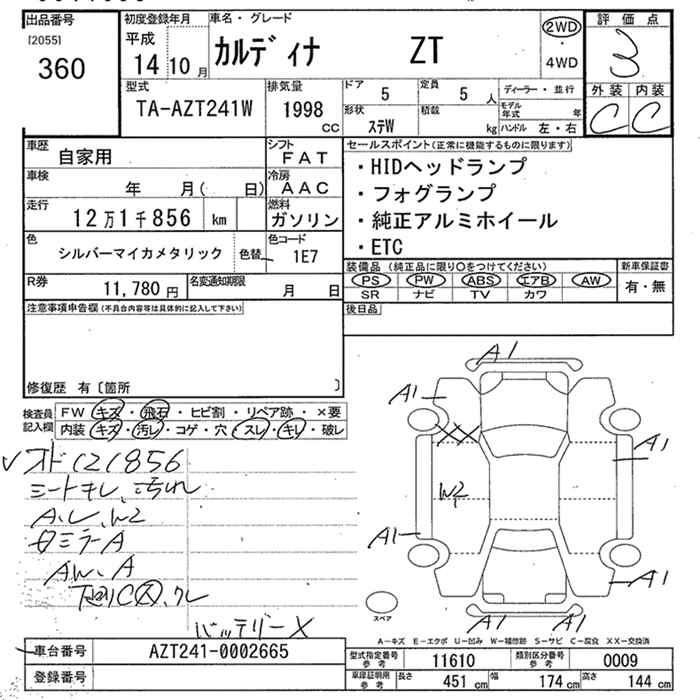 出品番号 初度登録年月 車名・グレード 評価点
[2055] 平成 カルディナ ZT 2WD 3
360 14 10月 ・ 4WD
外装 内装
型式 排気量 ドア 5 定員 5人 ディーラー・並行 C C
TA-AZT241W 1998 CC 形状 ステW 積載 kg モデル年式 年
ハンドル 左・右
車歴 自家用 シフト FAT セールスポイント(正常に機能するものに限ります)
・HIDヘッドランプ
車検 年 月( 日) 冷房 AAC ・フォグランプ
走行 12万1千856 km 燃料 ガソリン ・純正アルミホイール
色 シルバーマイカメタリック 色替 色コード 1E7 ・ETC
装備品(純正品に限り○をつけてください) 新車保証書
R券 11,780円 名変通知期限 月 日 PS PW ABS エアB AW 有・無
SR ナビ TV カワ
注意事項申告欄(不具合内容等は具体的に記入して下さい) 後日品
修復歴 有〔箇所 〕
検査員記入欄 FW キズ・飛石・ヒビ割・リペア跡・×要
内装 キズ・汚レ・コゲ・穴・スレ・キレ・破レ
A1
A1
A1
W2
A1
A1
A1 A1
スペア
オド121856
シートキレ、汚れ
A.L、W2
ミラーA
AW、A
バッテリーX
A-キズ E-エクボ U-凹み W-補修跡 S-サビ C-腐食 XX-交換済
車台番号 AZT241-0002665 型式指定番号参考 11610 類別区分番号参考 0009
登録番号 車庫証明用参考 長さ 451cm 幅 174cm 高さ 144cm